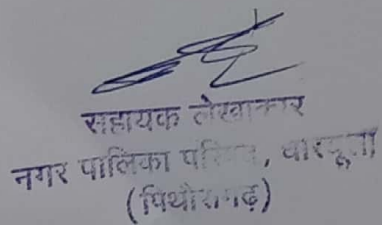 सहायक लेखाकार
नगर पालिका परिषद, धारचूला
(पिथौरागढ़)